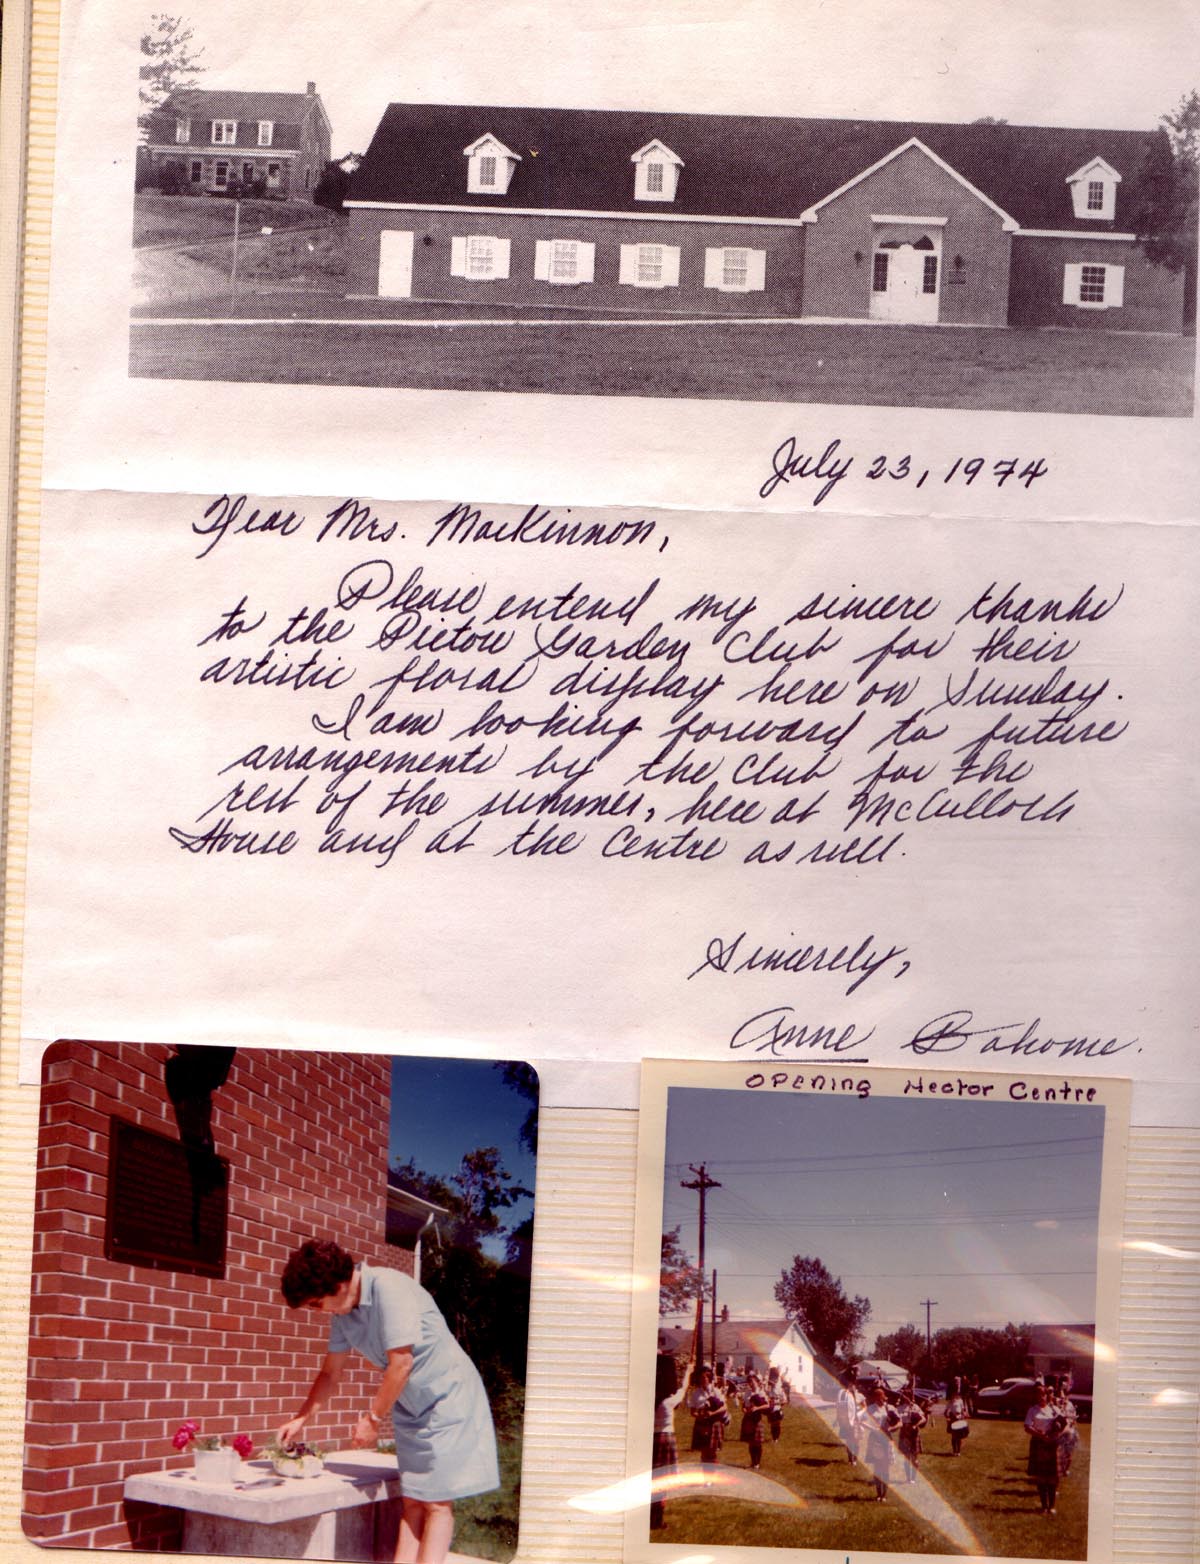 July 23, 1974
Dear Mrs. MacKinnon,
Please extend my sincere thanks
to the Pictou Garden Club for their
artistic floral display here on Sunday.
I am looking forward to future
arrangements by the Club for the
rest of the summer, here at McCulloch
House and at the Centre as well.
Sincerely,
Anne
Opening Hector Centre